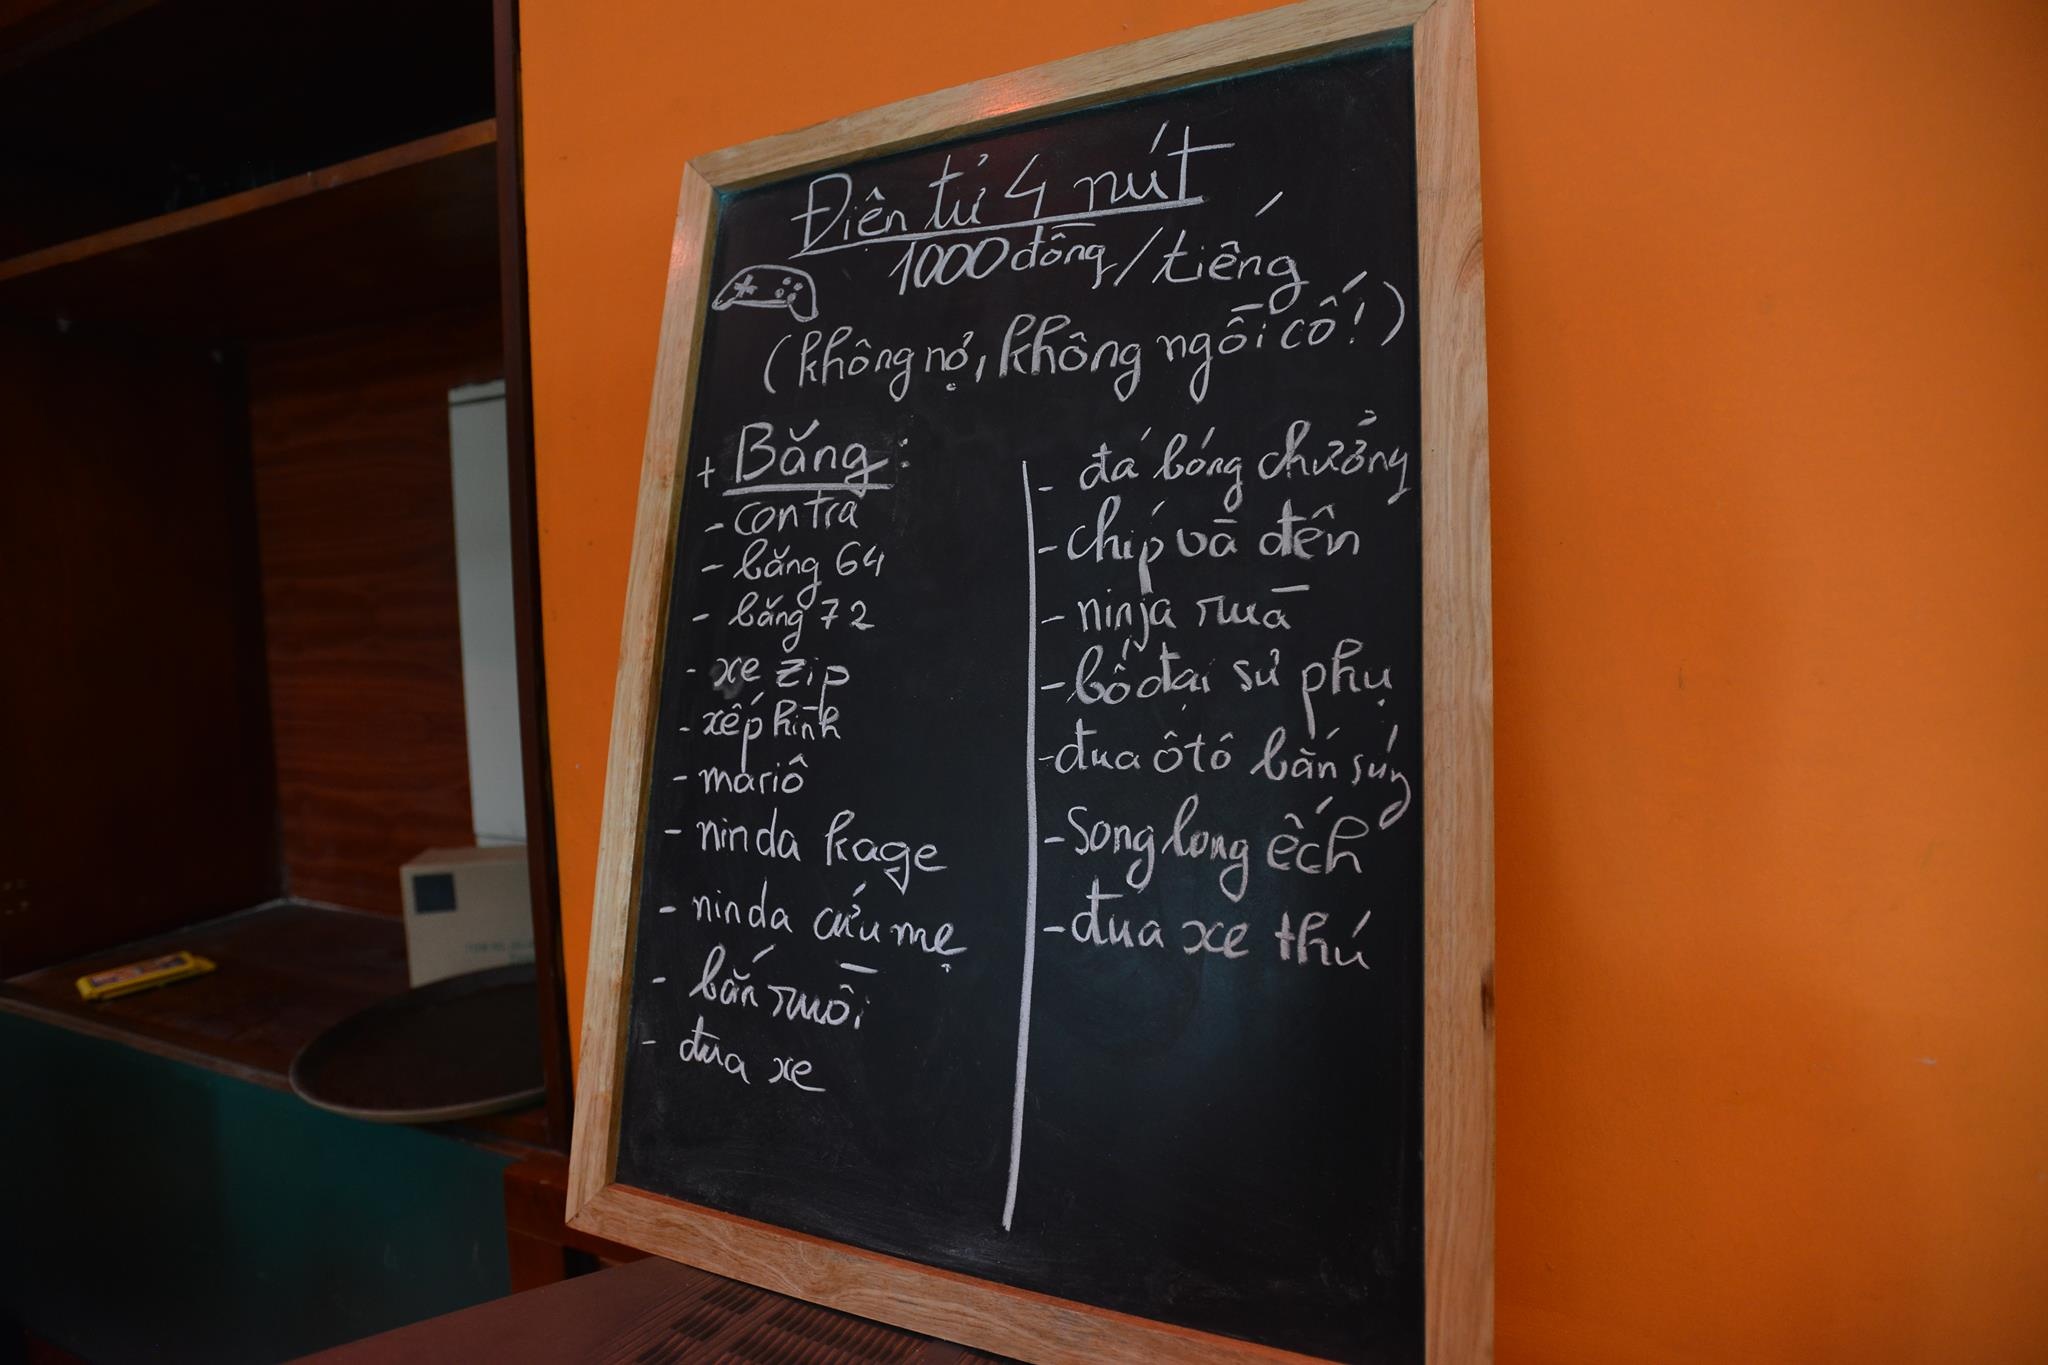 Điện tử 4 nút
1000 đồng/tiếng
(không nợ, không ngồi cố!)
+ Băng:
- contra
- băng 64
- băng 72
- xe zip
- xếp hình
- mariô
- ninda kage
- ninda cứu mẹ
- bắn ruồi
- đua xe
- đá bóng chưởng
- chíp và đên
- ninja rùa
- bồ đại sư phụ
- đua ôtô bắn súng
- Song long ếch
- đua xe thú